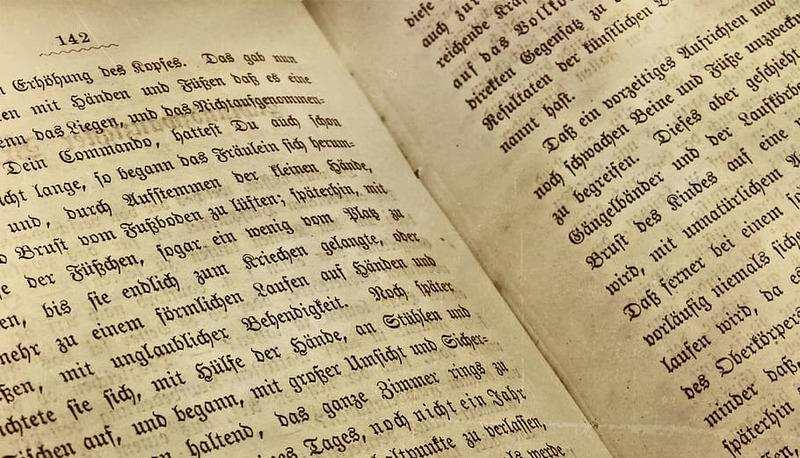 142
Erhöhung des Kopfes. Das gab nun
mit Händen und Füßen daß es eine
das Liegen, und das Nichtaufgenommen-
Dein Commando, hattest Du auch schon
lange, so begann das Fräulein sich herum-
und, durch Aufstemmen der kleinen Hände,
Brust vom Fußboden zu lüften; späterhin, mit
der Füßchen, sogar ein wenig vom Platz zu
bis sie endlich zum Kriechen gelangte, oder
zu einem förmlichen Laufen auf Händen und
mit unglaublicher Behendigkeit. Noch später
sie sich, mit Hülfe der Hände, an Stühlen und
auf, und begann, mit großer Umsicht und Sicher-
haltend, das ganze Zimmer rings zu
Tages, noch nicht ein Jahr
zu verlassen,
werde
diese
auch zur
reichende
auf das
direkten Gegensatz zu
Resultaten der künstlichen
nannt hast.
Daß ein vorzeitiges Aufrichten und
noch schwachen Beine und Füße
zu begreifen. Dieses aber geschieht
Gängelbänder und der Laufkörbe
Brust des Kindes auf eine
wird, mit unnatürlichem
Daß ferner bei einem
vorläufig niemals
laufen wird, da es
des Oberkörpers
minder daß
späterhin